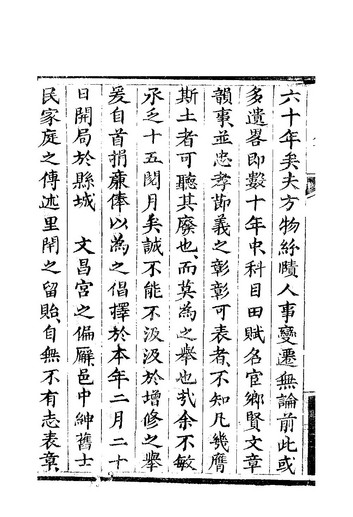 六十年矣夫方物紛賾人事變遷無論前此或
多遺畧即數十年中科目田賦名宦鄉賢文章
韻事並忠孝節義之彰彰可表者不知凡幾膺
斯土者可聽其廢也而莫為之舉也哉余不敏
承乏十五閱月矣誠不能不汲汲於增修之舉
爰自首捐亷俸以為之倡擇於本年二月二十
日開局於縣城　文昌宮之偏厰邑中紳舊士
民家庭之傳述里閈之留貽自無不有志表章